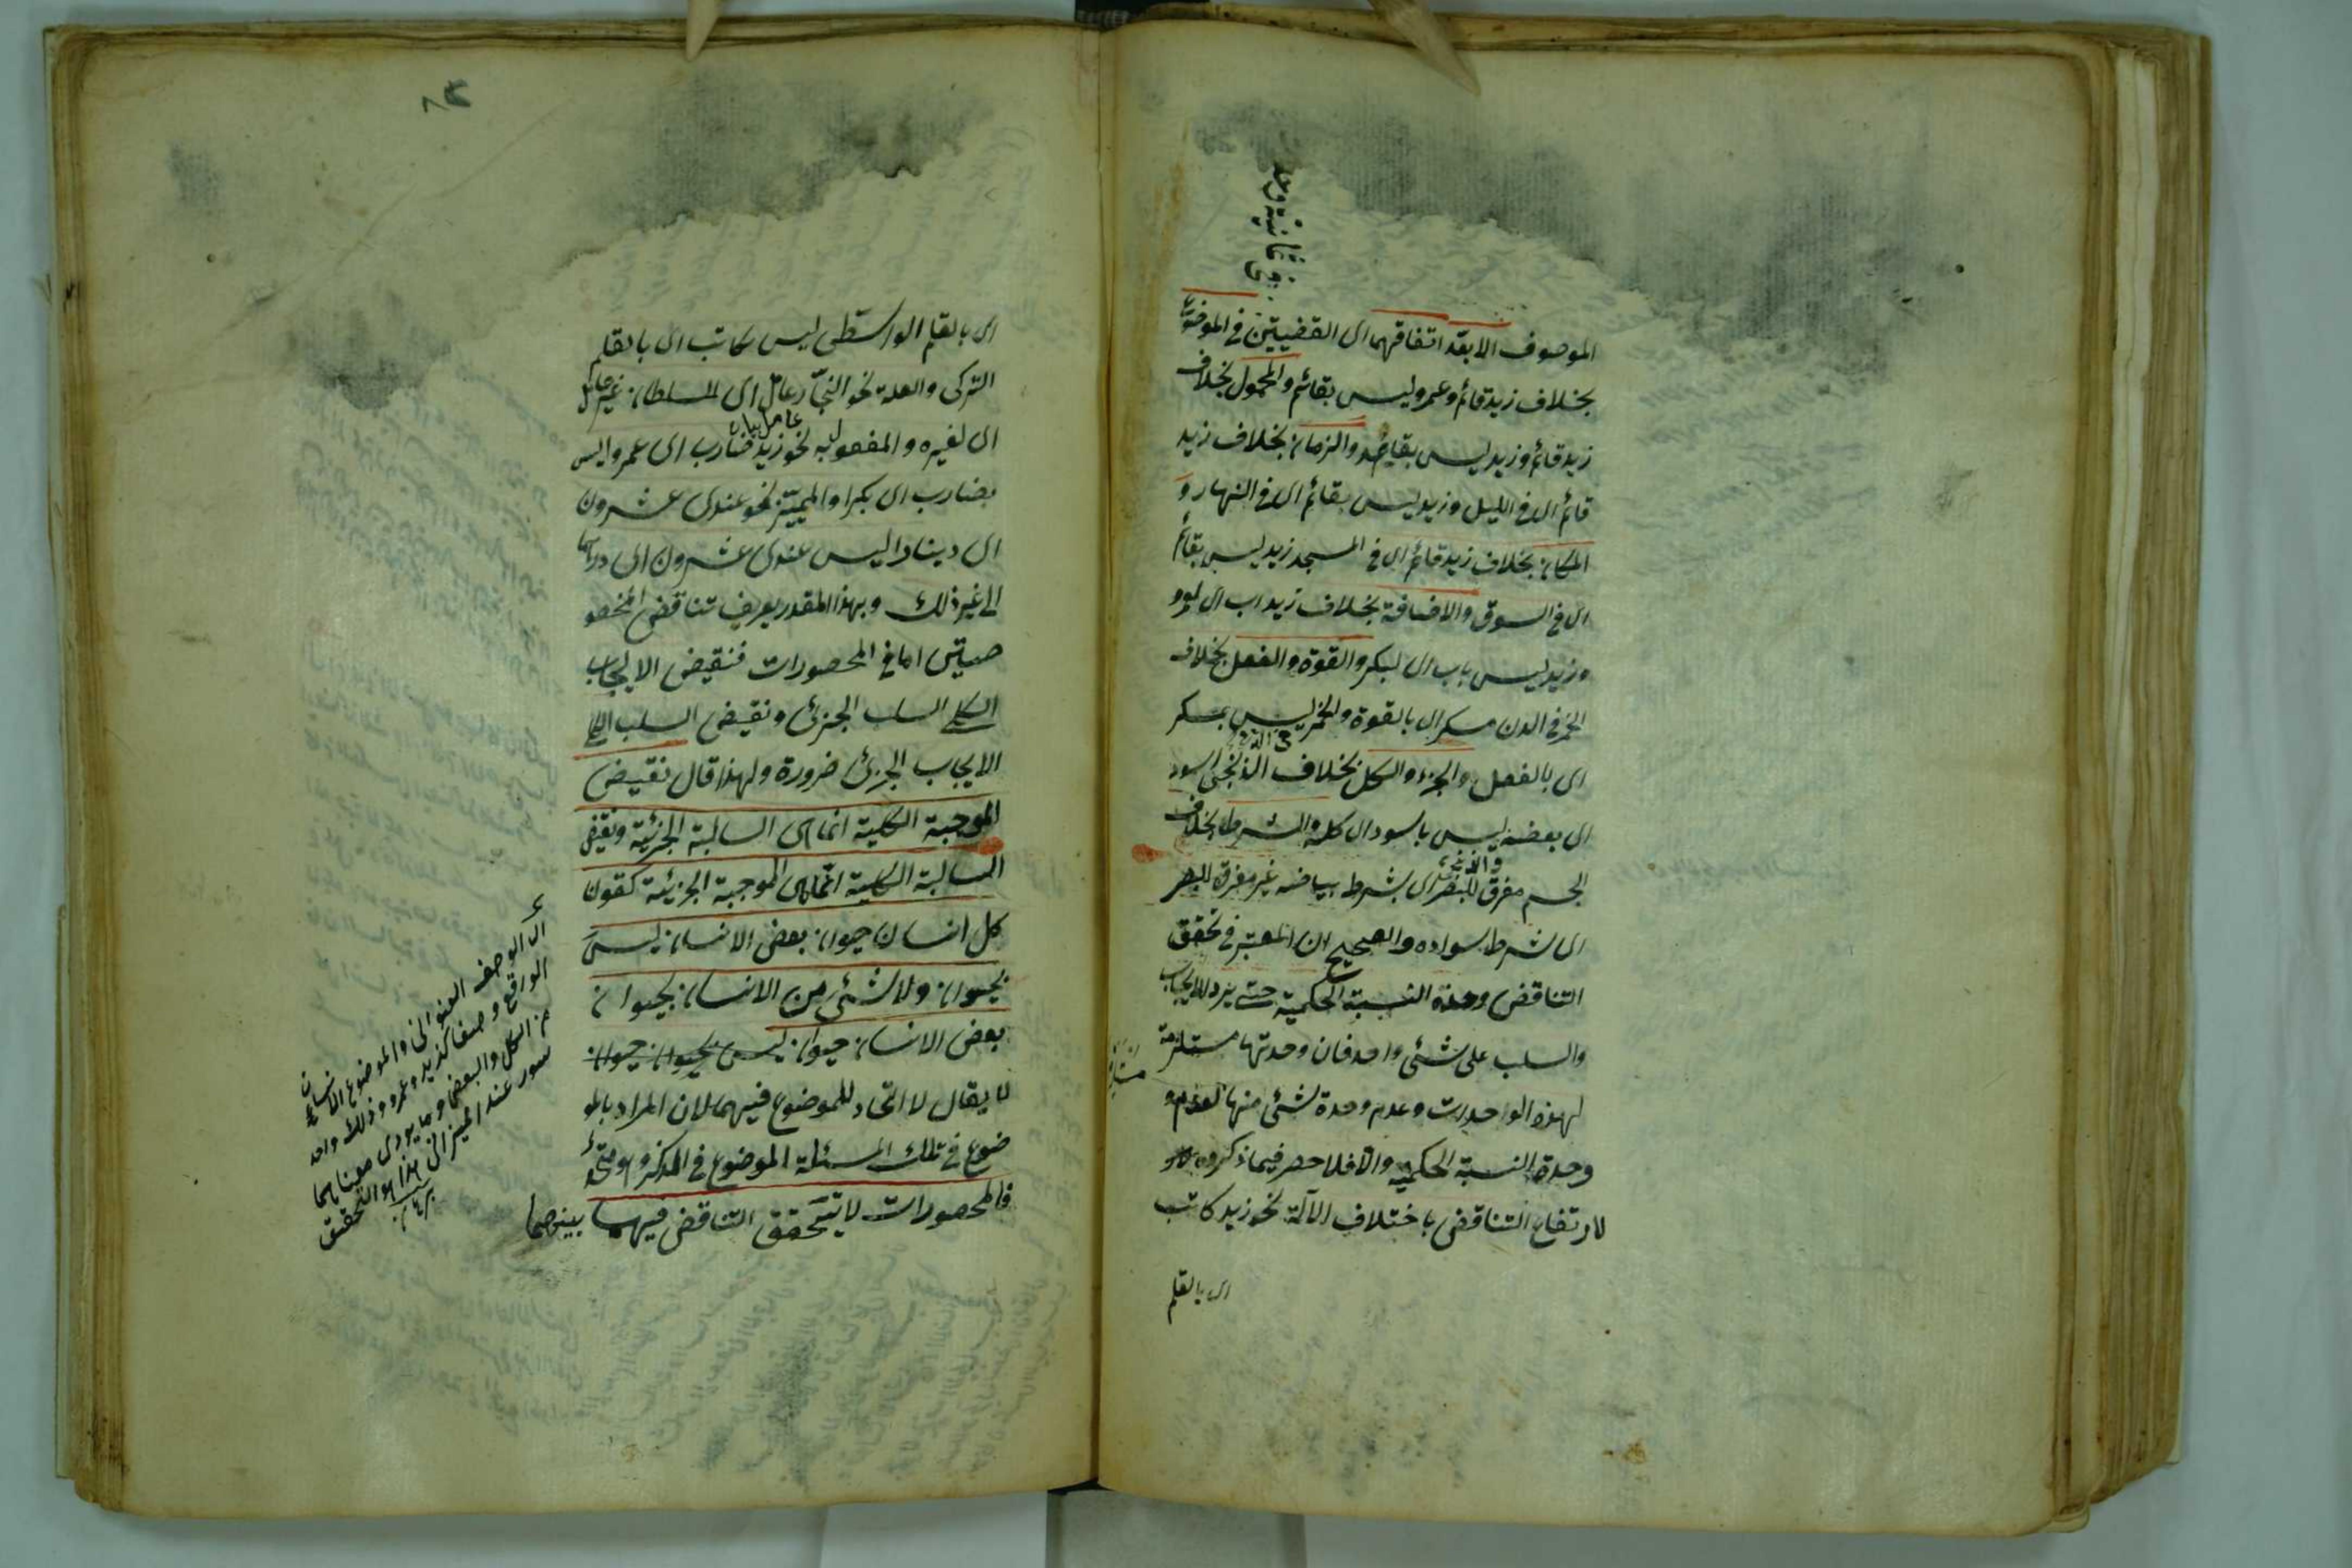 في ثمانية وحد
الموصوف الا بعد اتفاقهما اى القضيتين في الموضوع
بخلاف زيد قائم وعمرو ليس بقائم والمحمول بخلاف
زيد قائم وزيد ليس بقاعد والزمان بخلاف زيد
قائم اى في الليل وزيد ليس بقائم اى في النهار و
المكان بخلاف زيد قائم اى في المسجد زيد ليس بقائم
اى في السوق والاضافة بخلاف زيد اب اى لعمرو
وزيد ليس باب اى لبكر والقوة والفعل بخلاف
الخمر في الدن مسكر اى بالقوة والخمر ليس بمسكر
في الدن
اى بالفعل والجزء والكل بخلاف الزنجى اسود
اى بعضه ليس باسود اى كله والشرط بخلاف
الجسم مفرق للبصر اى بشرط بياضه غير مفرق للبصر
اى شرط سواده والصحيح ان المعتبر في تحقق
التناقض وحدة النسبة الحكمية حتى يرد الايجاب
والسلب على شئ واحد فان وحدتها مستلزمة
لهذه الواحدات وعدم وحدة شئ منها لعدم
وحدة النسبة الحكمية والا فلا حصر فيما ذكروه
لارتفاع التناقض باختلاف الآلة نحو زيد كاتب
اى بالقلم
اى بالقلم الواسطى ليس كاتب اى بالقلم
التركى والعلة نحو النجار عامل اى للسلطان غير عامل
اى لغيره والمفعول به نحو زيد ضارب اى عمروا ليس
بضارب اى بكرا والمميز نحو عندى عشرون
اى دينارا ليس عندى عشرون اى درهما
الى غير ذلك وبهذا المقدر يعرف تناقض المخصو
صيتين اما في المحصورات فنقيض الايجاب
الكلى السلب الجزئى ونقيض السلب الكلى
الايجاب الجزئى ضرورة ولهذا قال نقيض
الموجبة الكلية انما هى السالبة الجزئية ونقيض
السالبة الكلية انما هى الموجبة الجزئية كقولن
كل انسان حيوان بعض الانسان ليس
بحيوان ولا شئ من الانسان بحيوان
بعض الانسان حيوان ليس بحيوان حيوان
لا يقال لا اتحاد للموضوع فيهما لان المراد بالمو
ضوع في تلك المسئلة الموضوع في الذكر وهو متحد
فالمحصورات لا يتحقق التناقض فيهما بينهما
اى الوصف العنوانى والموضوع الانسان
الواقع وصفا كزيد وعمرو وذلك واحد
من الكل والبعض وما يؤدى معناهما
سور عند الميزانى هذا هو التحقيق